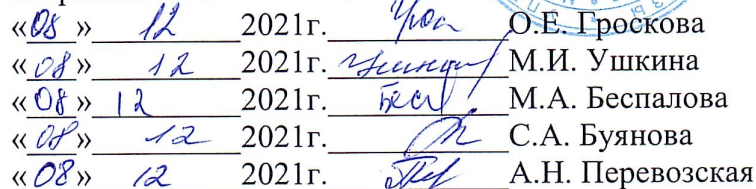 «08» 12 2021г. О.Е. Гроскова
«08» 12 2021г. М.И. Ушкина
«08» 12 2021г. Бесп М.А. Беспалова
«08» 12 2021г. С.А. Буянова
«08» 12 2021г. Пер А.Н. Перевозская